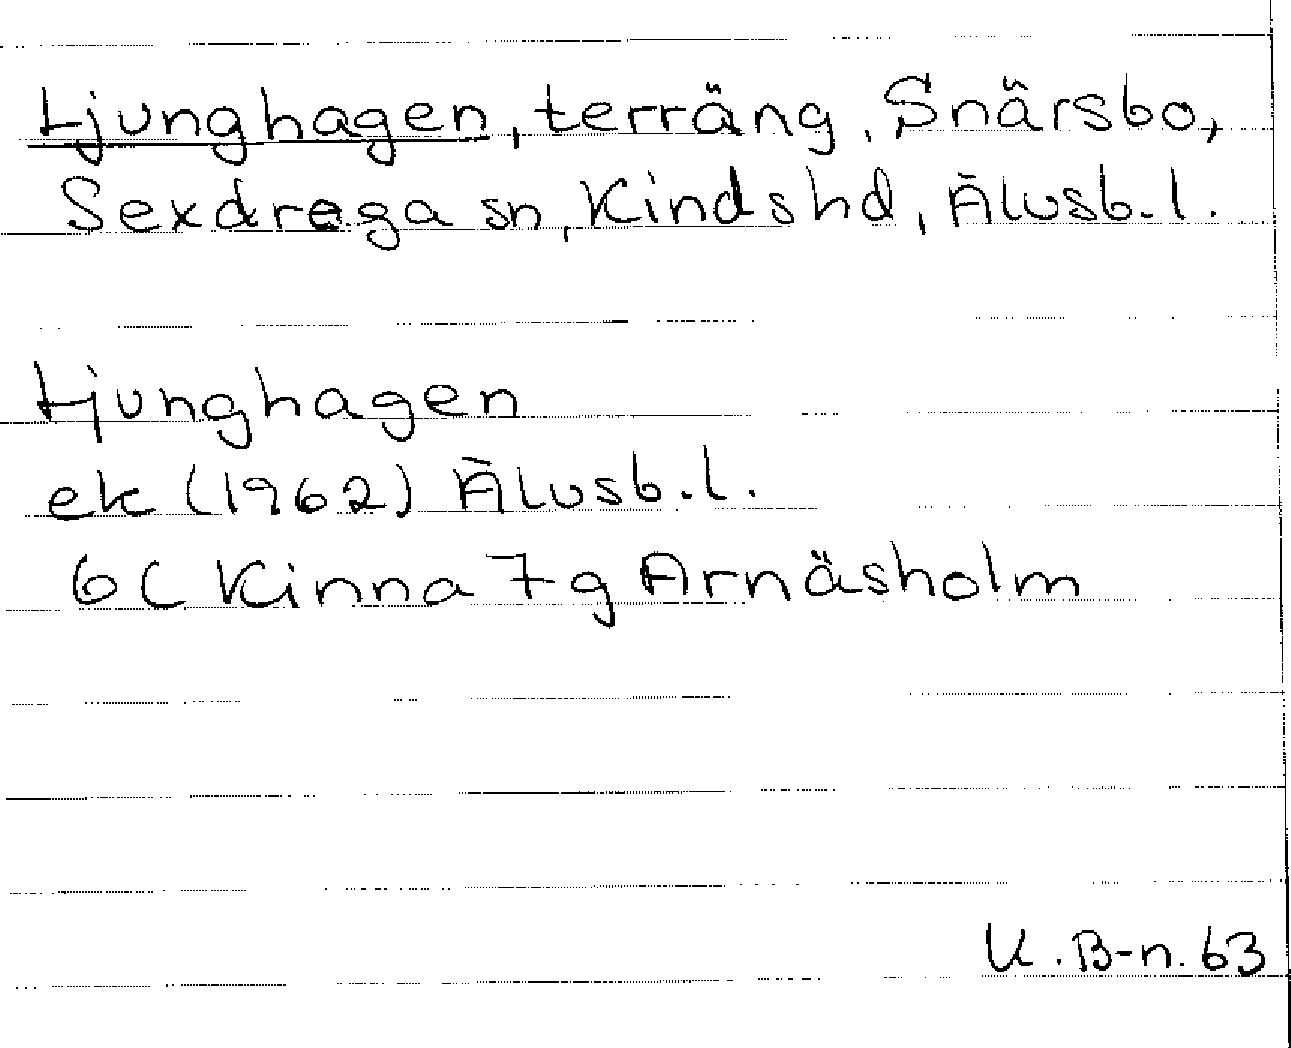 Ljunghagen, terräng, Snärsbo,
Sexdrega sn, Kinds hd, Älvsb. l.
Ljunghagen
ek (1962) Älvsb. l.
6C Kinna 7g Arnäsholm
K. B-n. 63